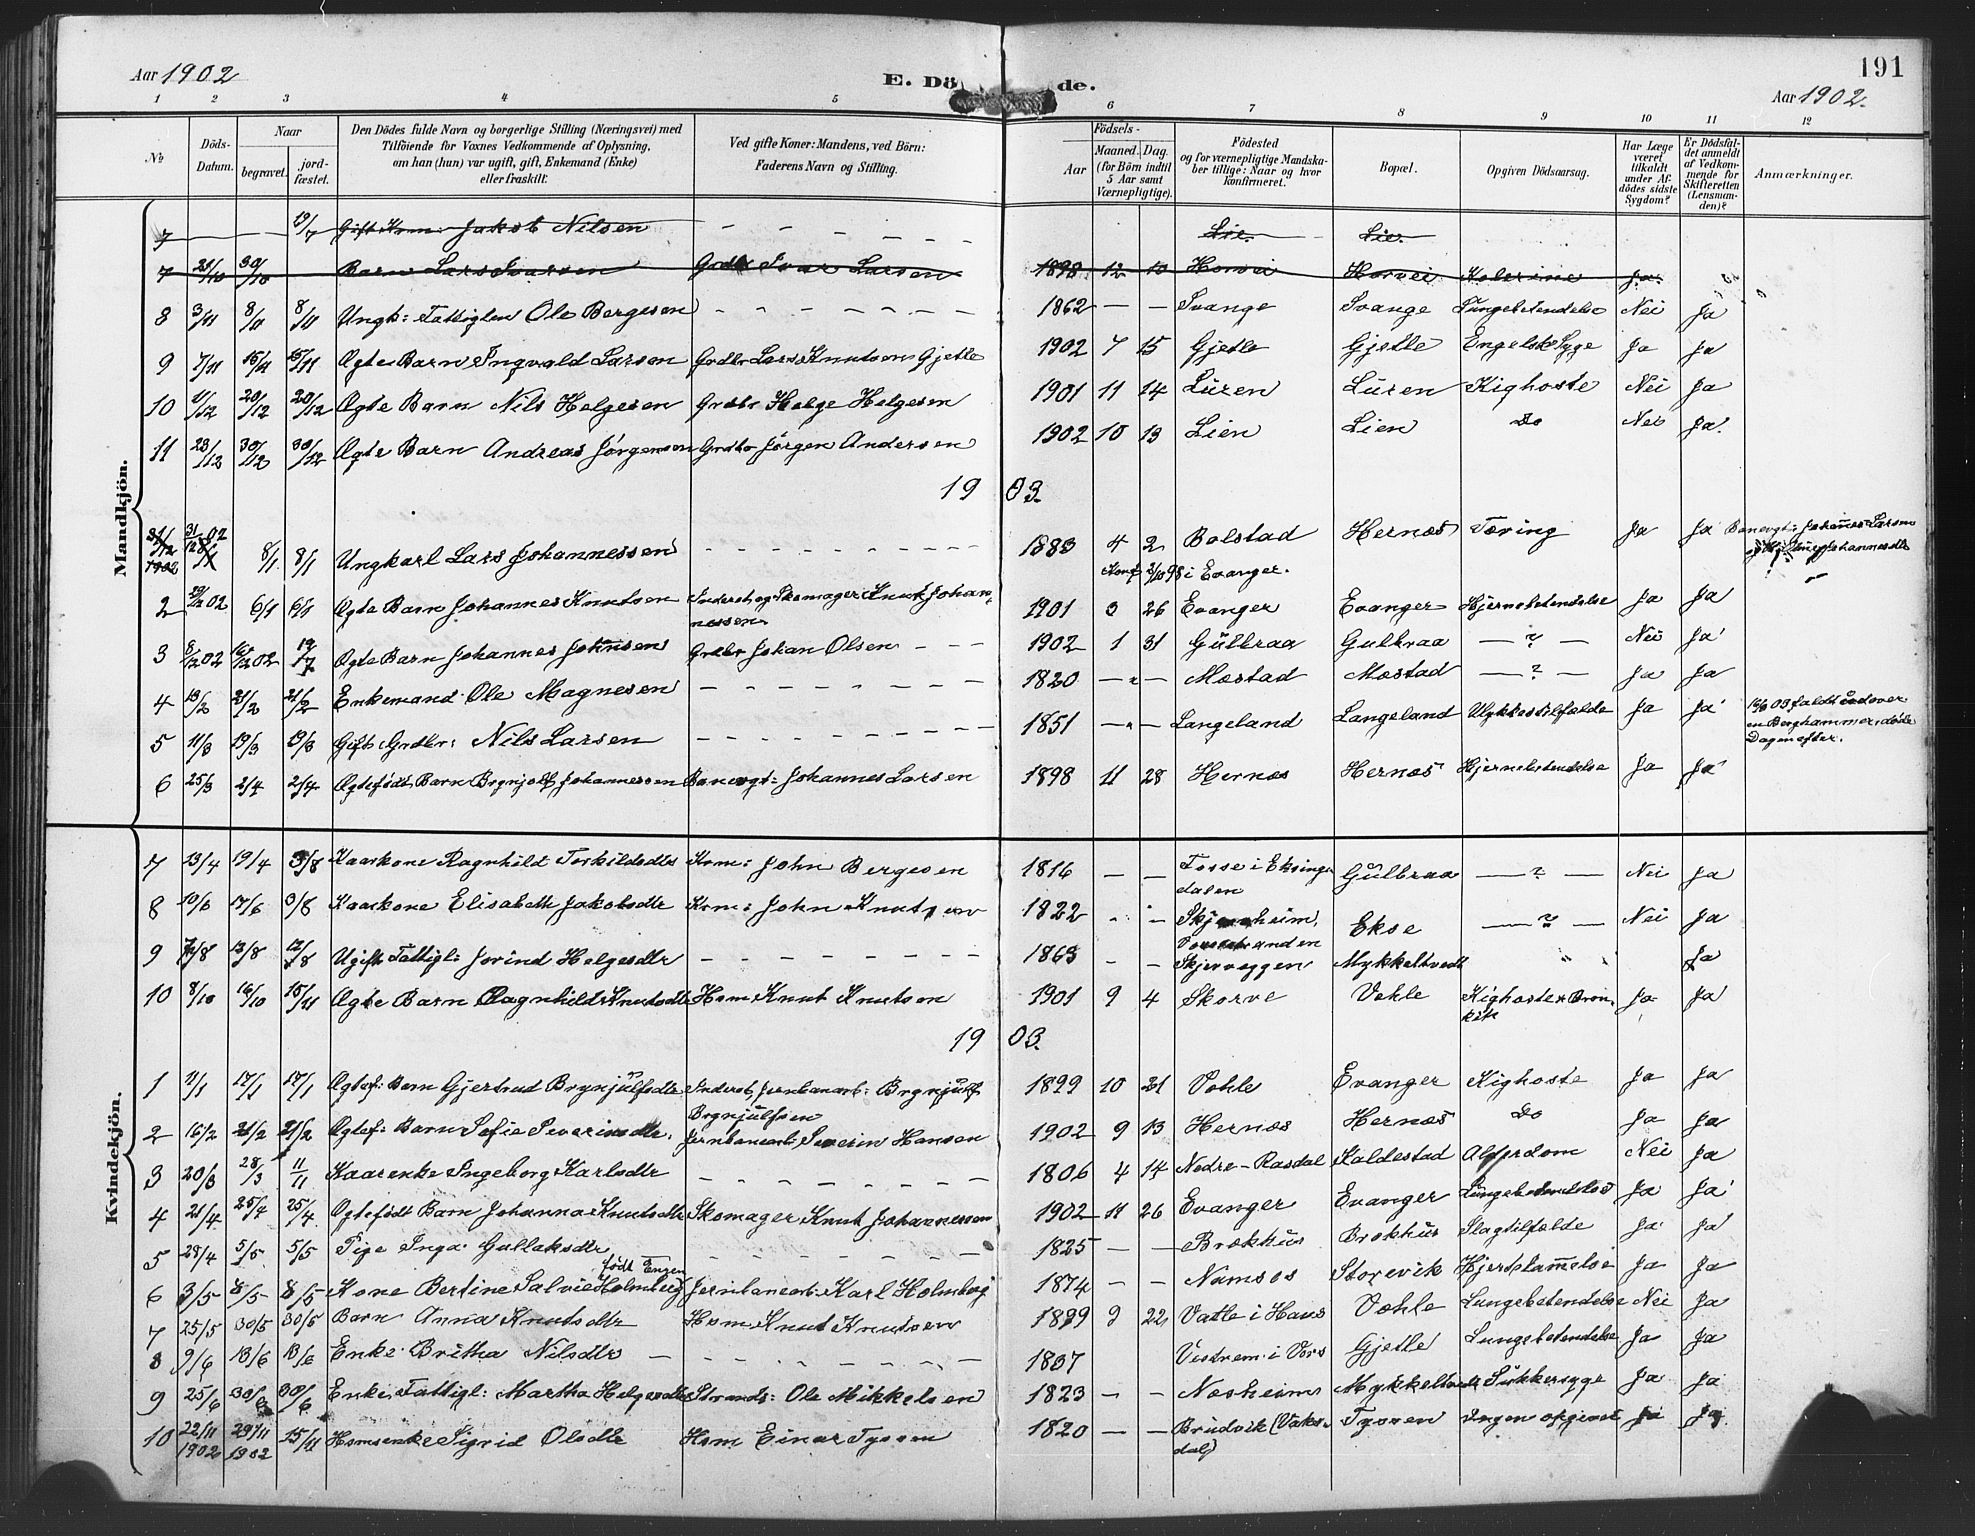 Aar 1902
E. Dö de.
191
Aar 1902.
1 2 3 4 5 6 7 8 9 10 11 12
No
Döds-Datum.
Naar
begravet.
jord-fæstet.
Den Dödes fulde Navn og borgerlige Stilling (Næringsvei) med
Tilföiende for Voxnes Vedkommende af Oplysning,
om han (hun) var ugift, gift, Enkemand (Enke)
eller fraskilt.
Ved gifte Koner: Mandens, ved Börn:
Faderens Navn og Stilling.
Födsels-
Aar
Maaned. Dag.
(for Börn indtil
5 Aar samt
Værnepligtige).
Födested
og for værnepligtige Mandska-
ber tillige: Naar og hvor
konfirmeret.
Bopæl.
Opgiven Dödsaarsag.
Har Læge
været
tilkaldt
under Af-
dödes sidste
Sygdom?
Er Dödsfal-
det anmeldt
af Vedkom-
mende for
Skifteretten
(Lensman-
den)?
Anmærkninger.
Mandkjön.
7 19/7 Gift Hsm. Jakob Nilsen Lie. Lie.
7 23/10 30/10 Barn Lars Ivarsen Grdbr Ivar Larsen 1898 12 10 Horvei Horvei Kolerine Ja.
8 3/11 8/11 8/11 Ungk: Fattiglem Ole Bergesen 1862 Svange Svange Lungebetendelse Nei Ja
9 7/11 15/11 15/11 Ægte Barn Ingvald Larsen Grdbr Lars Knutsen Gjetle 1902 7 15 Gjetle Gjetle Engelsk Syge Ja Ja
10 11/12 20/12 20/12 Ægte Barn Nils Helgesen Grdbr Helge Helgesen 1901 11 14 Lüren Lüren Kighoste Nei Ja
11 23/12 30/12 30/12 Ægte Barn Andreas Jörgensen Grdbr Jörgen Andersen 1902 10 13 Lien Lien Do Nei Ja.
19 03.
31/12 1902 31/12 02 8/1 8/1 Ungkarl Lars Johannessen 1883 4 2 Bolstad Hernæs Tæring Ja Ja Banevgt: Johannes Larsen
Konf 2/10 98 i Evanger.
2 29/12 02 6/1 6/1 Ægte Barn Johannes Knutsen Inderst og Skomager Knut Johan-
nessen 1901 3 26 Evanger Evanger Hjernebetendelse Ja Ja
3 8/12 02 16/12 02 19/7 Ægte Barn Johannes Johnsen Grdbr Johan Olsen 1902 1 31 Gülbraa Gulbraa ? Nei Ja
4 13/2 21/2 21/2 Enkemand Ole Magnesen 1820 Mæstad Mæstad ? Ja Ja
5 11/3 19/3 19/3 Gift Grdbr: Nils Larsen 1851 Langeland Langeland Ulykkestilfælde Ja Ja 10/3 03 faldt udover
en Berghammer, döde
Dagen efter.
6 25/3 2/4 2/4 Ægtefödt Barn Brynjolf Johannessen Banevgt: Johannes Larsen 1898 11 28 Hernæs Hernæs Hjernebetendelse Ja Ja
Kvindekjön.
7 13/4 19/4 3/8 Kaarkone Ragnhild Torkildsdtr Hsm: John Bergesen 1816 Fosse i Eksinge-
dalen Gülbraa ? Nei Ja
8 10/6 17/6 3/8 Kaarkone Elisabeth Jakobsdtr Hsm: John Knutsen 1822 Skjerheim,
Vossestranden Ekse ? Nei Ja
9 7/8 13/8 12/8 Ugift Fattigl: Jorind Helgesdtr 1863 Skjerveggen Mykkeltvedt Ja
10 8/10 16/10 15/11 Ægte Barn Ragnhild Knutsdtr Hsm Knut Knutsen 1901 9 4 Skorve Væhle Kighoste & Bron-
kit Ja Ja
19 03.
1 11/1 17/1 17/1 Ægtef: Barn Gjertrud Brynjülfsdtr Inderst, Jernbanearb: Brynjülf
Brynjülfsen 1899 10 31 Væhle Evanger Kighoste Ja Ja
2 16/2 21/2 21/2 Ægtef: Barn Sofie Severinsdtr. Jernbanearb: Severin Hansen 1902 9 13 Hernæs Hernæs Do Ja Ja
3 20/3 28/3 11/11 Kaarenke Ingeborg Karlsdtr 1806 4 14 Nedre-Rasdal Kaldestad Alderdom Nei Ja
4 21/4 25/4 25/4 Ægtefödt Barn Johanna Knutsdtr Skomager Knut Johannessen 1902 11 26 Evanger Evanger Lungebetendelse Ja Ja
5 28/4 5/5 5/5 Pige Inga Gullaksdtr 1825 Brækhüs Brækhüs Slagtilfælde Ja Ja
födt Engen
6 3/5 8/5 8/5 Kone Bertine Salvie Holmberg Jernbanearb: Karl Holmberg 1874 Namsos Storevik Hjertelammelse Ja Ja
7 25/5 30/5 30/5 Barn Anna Knutsdtr Hsm Knut Knutsen 1899 9 22 Vatle i Haus Væhle Lungebetendelse Nei Ja
8 9/6 13/6 13/6 Enke Britha Nilsdtr 1837 Vestrem i Vors Gjetle Lungebetendelse Ja Ja
9 25/6 30/6 30/6 Enke, Fattigl: Martha Helgesdtr Strands: Ole Mikkelsen 1823 Næsheim Mykkeltvedt Sükkersyge Ja Ja
10 22/11 1902 29/11 1902 15/11 Hsmsenke Sigrid Olsdtr Hsm Einar Tyssen 1820 Brudvik (Vaks-
dal) Tyssen Ingen opgivet Ja Ja